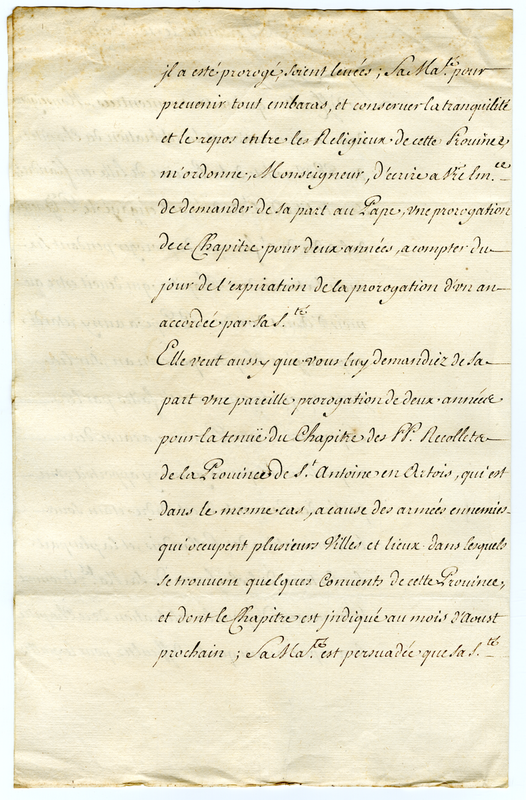 jl a esté prorogé, soient levées ; Sa Ma.té pour
prevenir tout embaras, et conserver la tranquilité
et le repos entre les Religieux de cette Province
m'ordonne, Monseigneur, d'écrire a Vr̃e Em.ce
de demander de sa part au Pape, vne prorogation
de ce Chapitre pour deux années, a compter du
jour de l'expiration de la prorogation d'vn an
accordée par sa S.té
Elle veut aussy que vous luy demandiez de sa
part vne pareille prorogation de deux années
pour la tenuë du Chapitre des PP. Recollets
de la Province de S.t Antoine en Artois, qui est
dans le mesme cas, a cause des armées ennemies
qui occupent plusieurs Villes et lieux dans lesquels
se trouvent quelques Convents de cette Province,
et dont le Chapitre est jndiqué au mois d'Aoust
prochain ; Sa Ma.té est persuadée que sa S.té